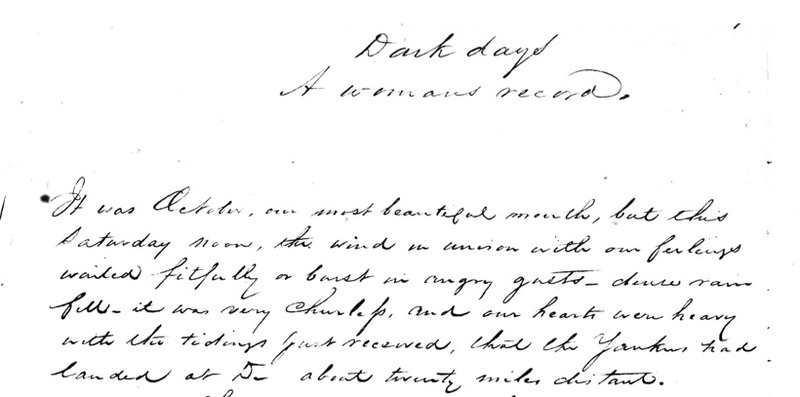 Dark days
A womans record.
It was October, our most beautiful month, but this
Saturday noon, the wind in unison with our feelings
wailed fitfully or burst in angry gusts - dense rain
fell - it was very cheerless, and our hearts were heavy
with the tidings just received, that the Yankees had
landed at D- about twenty miles distant.